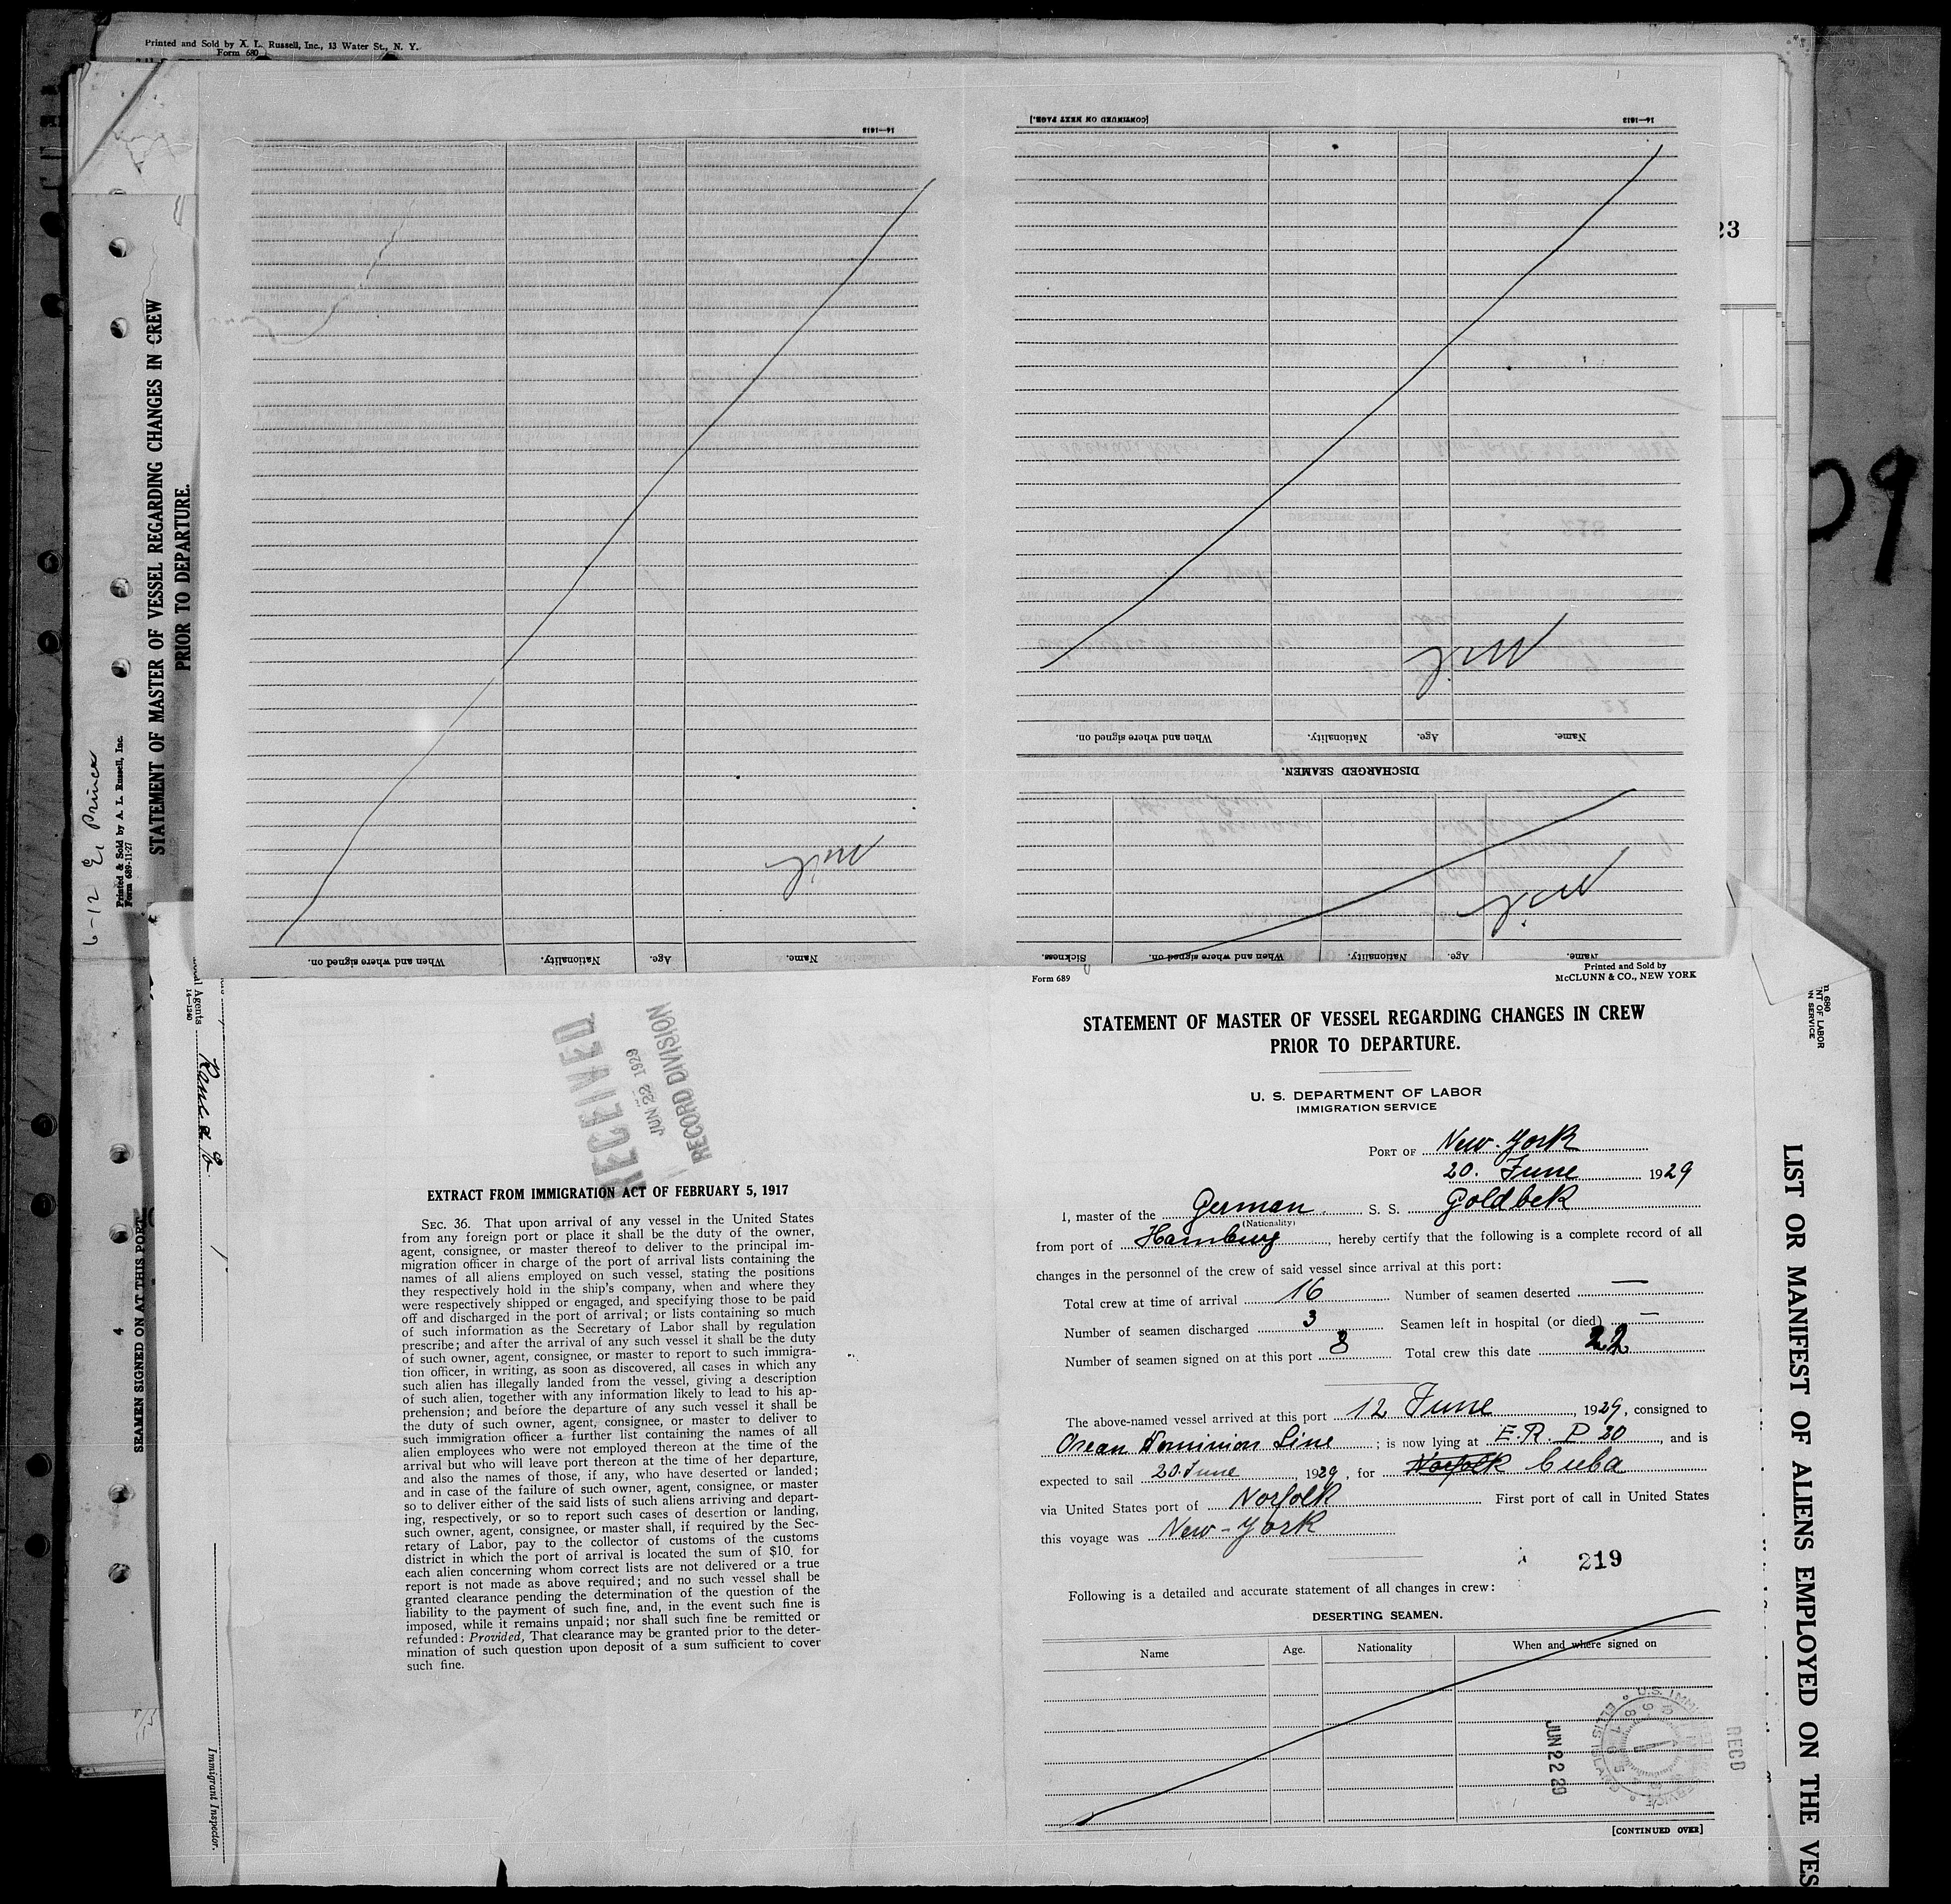 Printed and Sold by A. L. Russell, Inc., 13 Water St., N. Y.
Form 680
23
09
6-12 E. Prince
Printed & Sold by A. L. Russell, Inc.
Form 689-11-27
STATEMENT OF MASTER OF VESSEL REGARDING CHANGES IN CREW
PRIOR TO DEPARTURE.
14—1240
4
SEAMEN SIGNED ON AT THIS PORT
Immigrant Inspector.
14—1613
Name.
Age.
Nationality.
When and where signed on.
Nil
[CONTINUED ON NEXT PAGE.]
14—1613
Nil
Name.
Age.
Nationality.
When and where signed on.
DISCHARGED SEAMEN.
Nil
Name.
Age.
Nationality.
When and where signed on.
Sickness.
RECEIVED
JUN 22 1929
RECORD DIVISION
EXTRACT FROM IMMIGRATION ACT OF FEBRUARY 5, 1917
SEC. 36. That upon arrival of any vessel in the United States
from any foreign port or place it shall be the duty of the owner,
agent, consignee, or master thereof to deliver to the principal im-
migration officer in charge of the port of arrival lists containing the
names of all aliens employed on such vessel, stating the positions
they respectively hold in the ship's company, when and where they
were respectively shipped or engaged, and specifying those to be paid
off and discharged in the port of arrival; or lists containing so much
of such information as the Secretary of Labor shall by regulation
prescribe; and after the arrival of any such vessel it shall be the duty
of such owner, agent, consignee, or master to report to such immigra-
tion officer, in writing, as soon as discovered, all cases in which any
such alien has illegally landed from the vessel, giving a description
of such alien, together with any information likely to lead to his ap-
prehension; and before the departure of any such vessel it shall be
the duty of such owner, agent, consignee, or master to deliver to
such immigration officer a further list containing the names of all
alien employees who were not employed thereon at the time of the
arrival but who will leave port thereon at the time of her departure,
and also the names of those, if any, who have deserted or landed;
and in case of the failure of such owner, agent, consignee, or master
so to deliver either of the said lists of such aliens arriving and depart-
ing, respectively, or so to report such cases of desertion or landing,
such owner, agent, consignee, or master shall, if required by the Sec-
retary of Labor, pay to the collector of customs of the customs
district in which the port of arrival is located the sum of $10 for
each alien concerning whom correct lists are not delivered or a true
report is not made as above required; and no such vessel shall be
granted clearance pending the determination of the question of the
liability to the payment of such fine, and, in the event such fine is
imposed, while it remains unpaid; nor shall such fine be remitted or
refunded: Provided, That clearance may be granted prior to the deter-
mination of such question upon deposit of a sum sufficient to cover
such fine.
Form 689
Printed and Sold by
McCLUNN & CO., NEW YORK
STATEMENT OF MASTER OF VESSEL REGARDING CHANGES IN CREW
PRIOR TO DEPARTURE.
U. S. DEPARTMENT OF LABOR
IMMIGRATION SERVICE
PORT OF New-York
20. June 1929
I, master of the German S. S. Goldbek
(Nationality)
from port of Hamburg, hereby certify that the following is a complete record of all
changes in the personnel of the crew of said vessel since arrival at this port:
Total crew at time of arrival 16 Number of seamen deserted —
Number of seamen discharged 3 Seamen left in hospital (or died) —
Number of seamen signed on at this port 8 Total crew this date 22
The above-named vessel arrived at this port 12 June, 1929, consigned to
Ocean Dominion Line; is now lying at E.R. P 20, and is
expected to sail 20. June, 1929, for Norfolk Cuba
via United States port of Norfolk First port of call in United States
this voyage was New-York
219
Following is a detailed and accurate statement of all changes in crew:
DESERTING SEAMEN.
Name Age. Nationality When and where signed on
JUN 22 29
RECD
[CONTINUED OVER]
LIST OR MANIFEST OF ALIENS EMPLOYED ON THE VES